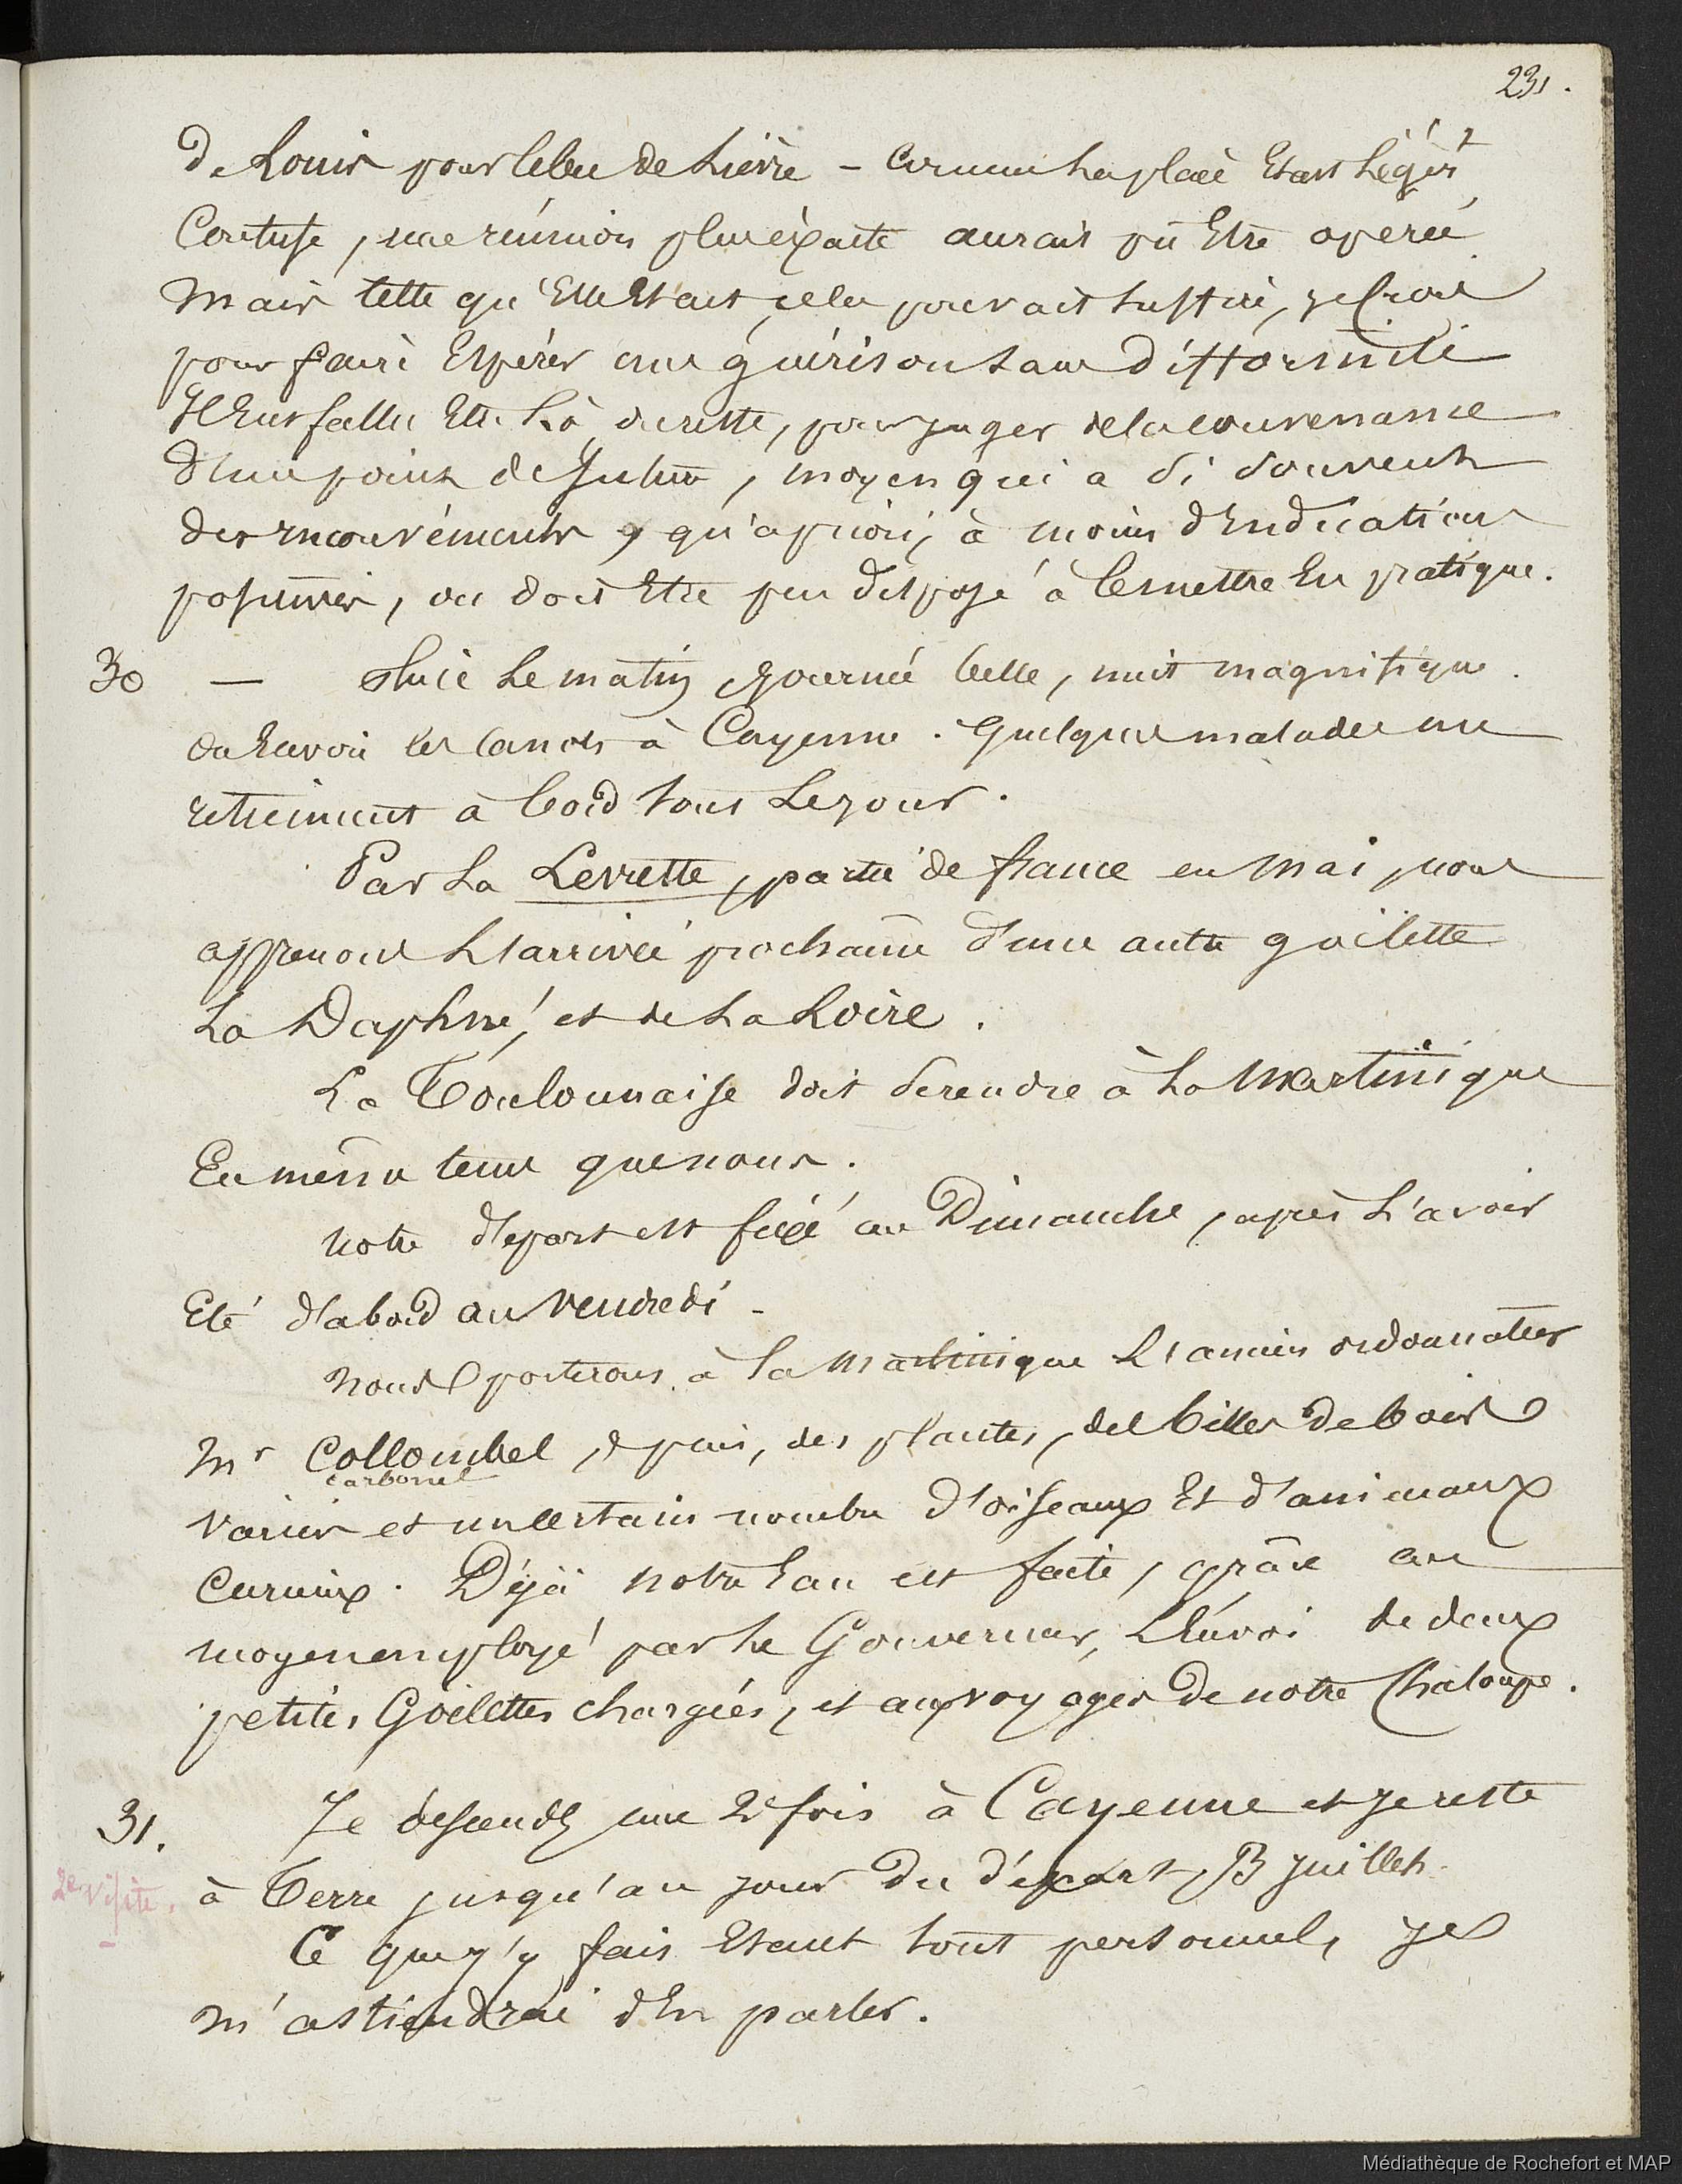 231.
de Louis pour le bec de Lièvre – Comme la plaie était légèrt
Contuse, une réunion plus éxacte aurait pû Etre operée
Mais telle qu'Elle Etait, cela pouvait suffire, je crois
pour faire Espérer une guérison sans difformité
Il Eut fallu Etre là, du reste, pour juger de la convenance
d'un point de Suture, moyen qui a si souvent
des inconvénients, qu'à priori, à moins d'Indications
positives, on doit Etre peu disposé à le mettre En pratique.
30 — Pluie le matin, journée belle, nuit magnifique.
On Envoie les canots à Cayenne. Quelques malades me
retiennent à bord tout le jour.
Par la Levrette, partie de france en Mai, nous
apprenons l'arrivée prochaine d'une autre goëlette
La Daphné, et de La Loire.
La Toulonnaise doit se rendre à la Martinique
En même tems que nous.
Notre départ est fixé au Dimanche, après l'avoir
Eté d'abord au Vendredi –
Nous porterons à la Martinique l'ancien ordonnateur
Mr Collombel, & puis, des plantes, des billes de bois
carbonel
variés et un certain nombre d'oiseaux Et d'animaux
Curieux. Déjà notre Eau est faite, grâce au
moyen employé par le Gouverneur, l'Envoi de deux
petites Goëlettes chargées, et aux voyages de notre Chaloupe.
31. Je descends une 2e fois à Cayenne et je reste
2e visite. à Terre jusqu'au jour du départ, 3 juillet.
Ce que j'y fais Etant tout personnel, je
m'abstiendrai d'En parler.
Médiathèque de Rochefort et MAP